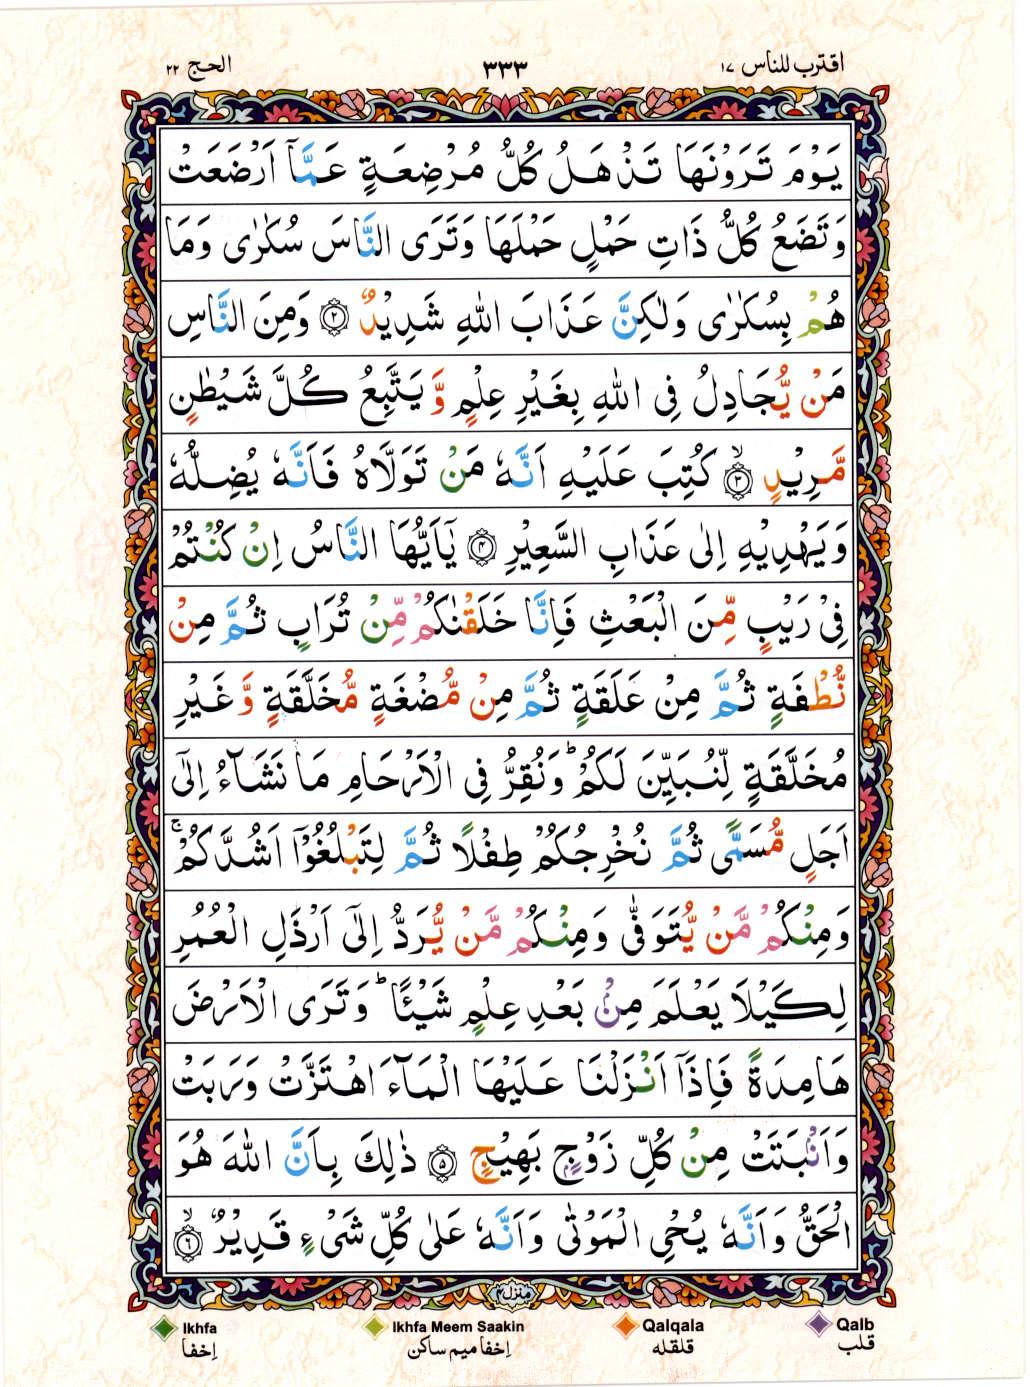 اقترب للناس ١٧
٣٣٣
الحج ٢٢
يَوْمَ تَرَوْنَهَا تَذْهَلُ كُلُّ مُرْضِعَةٍ عَمَّاۤ اَرْضَعَتْ
وَتَضَعُ كُلُّ ذَاتِ حَمْلٍ حَمْلَهَا وَتَرَى النَّاسَ سُكٰرٰى وَمَا
هُمْ بِسُكٰرٰى وَلٰكِنَّ عَذَابَ اللّٰهِ شَدِيْدٌ ۝٢ وَمِنَ النَّاسِ
مَنْ يُّجَادِلُ فِى اللّٰهِ بِغَيْرِ عِلْمٍ وَّيَتَّبِعُ كُلَّ شَيْطٰنٍ
مَّرِيْدٍ ۝٣ۙ كُتِبَ عَلَيْهِ اَنَّهٗ مَنْ تَوَلَّاهُ فَاَنَّهٗ يُضِلُّهٗ
وَيَهْدِيْهِ اِلٰى عَذَابِ السَّعِيْرِ ۝٤ يٰۤاَيُّهَا النَّاسُ اِنْ كُنْتُمْ
فِىْ رَيْبٍ مِّنَ الْبَعْثِ فَاِنَّا خَلَقْنٰكُمْ مِّنْ تُرَابٍ ثُمَّ مِنْ
نُّطْفَةٍ ثُمَّ مِنْ عَلَقَةٍ ثُمَّ مِنْ مُّضْغَةٍ مُّخَلَّقَةٍ وَّغَيْرِ
مُخَلَّقَةٍ لِّنُبَيِّنَ لَكُمْ ؕ وَنُقِرُّ فِى الْاَرْحَامِ مَا نَشَآءُ اِلٰٓى
اَجَلٍ مُّسَمًّى ثُمَّ نُخْرِجُكُمْ طِفْلًا ثُمَّ لِتَبْلُغُوْۤا اَشُدَّكُمْ ۚ
وَمِنْكُمْ مَّنْ يُّتَوَفّٰى وَمِنْكُمْ مَّنْ يُّرَدُّ اِلٰٓى اَرْذَلِ الْعُمُرِ
لِكَيْلَا يَعْلَمَ مِنْۢ بَعْدِ عِلْمٍ شَيْـًٔا ؕ وَتَرَى الْاَرْضَ
هَامِدَةً فَاِذَاۤ اَنْزَلْنَا عَلَيْهَا الْمَآءَ اهْتَزَّتْ وَرَبَتْ
وَاَنْۢبَتَتْ مِنْ كُلِّ زَوْجٍۢ بَهِيْجٍ ۝٥ ذٰلِكَ بِاَنَّ اللّٰهَ هُوَ
الْحَقُّ وَاَنَّهٗ يُحْىِ الْمَوْتٰى وَاَنَّهٗ عَلٰى كُلِّ شَىْءٍ قَدِيْرٌ ۝٦ۙ
منزل٤
Ikhfa
Ikhfa Meem Saakin
Qalqala
Qalb
اِخفا
اِخفا میم ساکن
قلقله
قلب